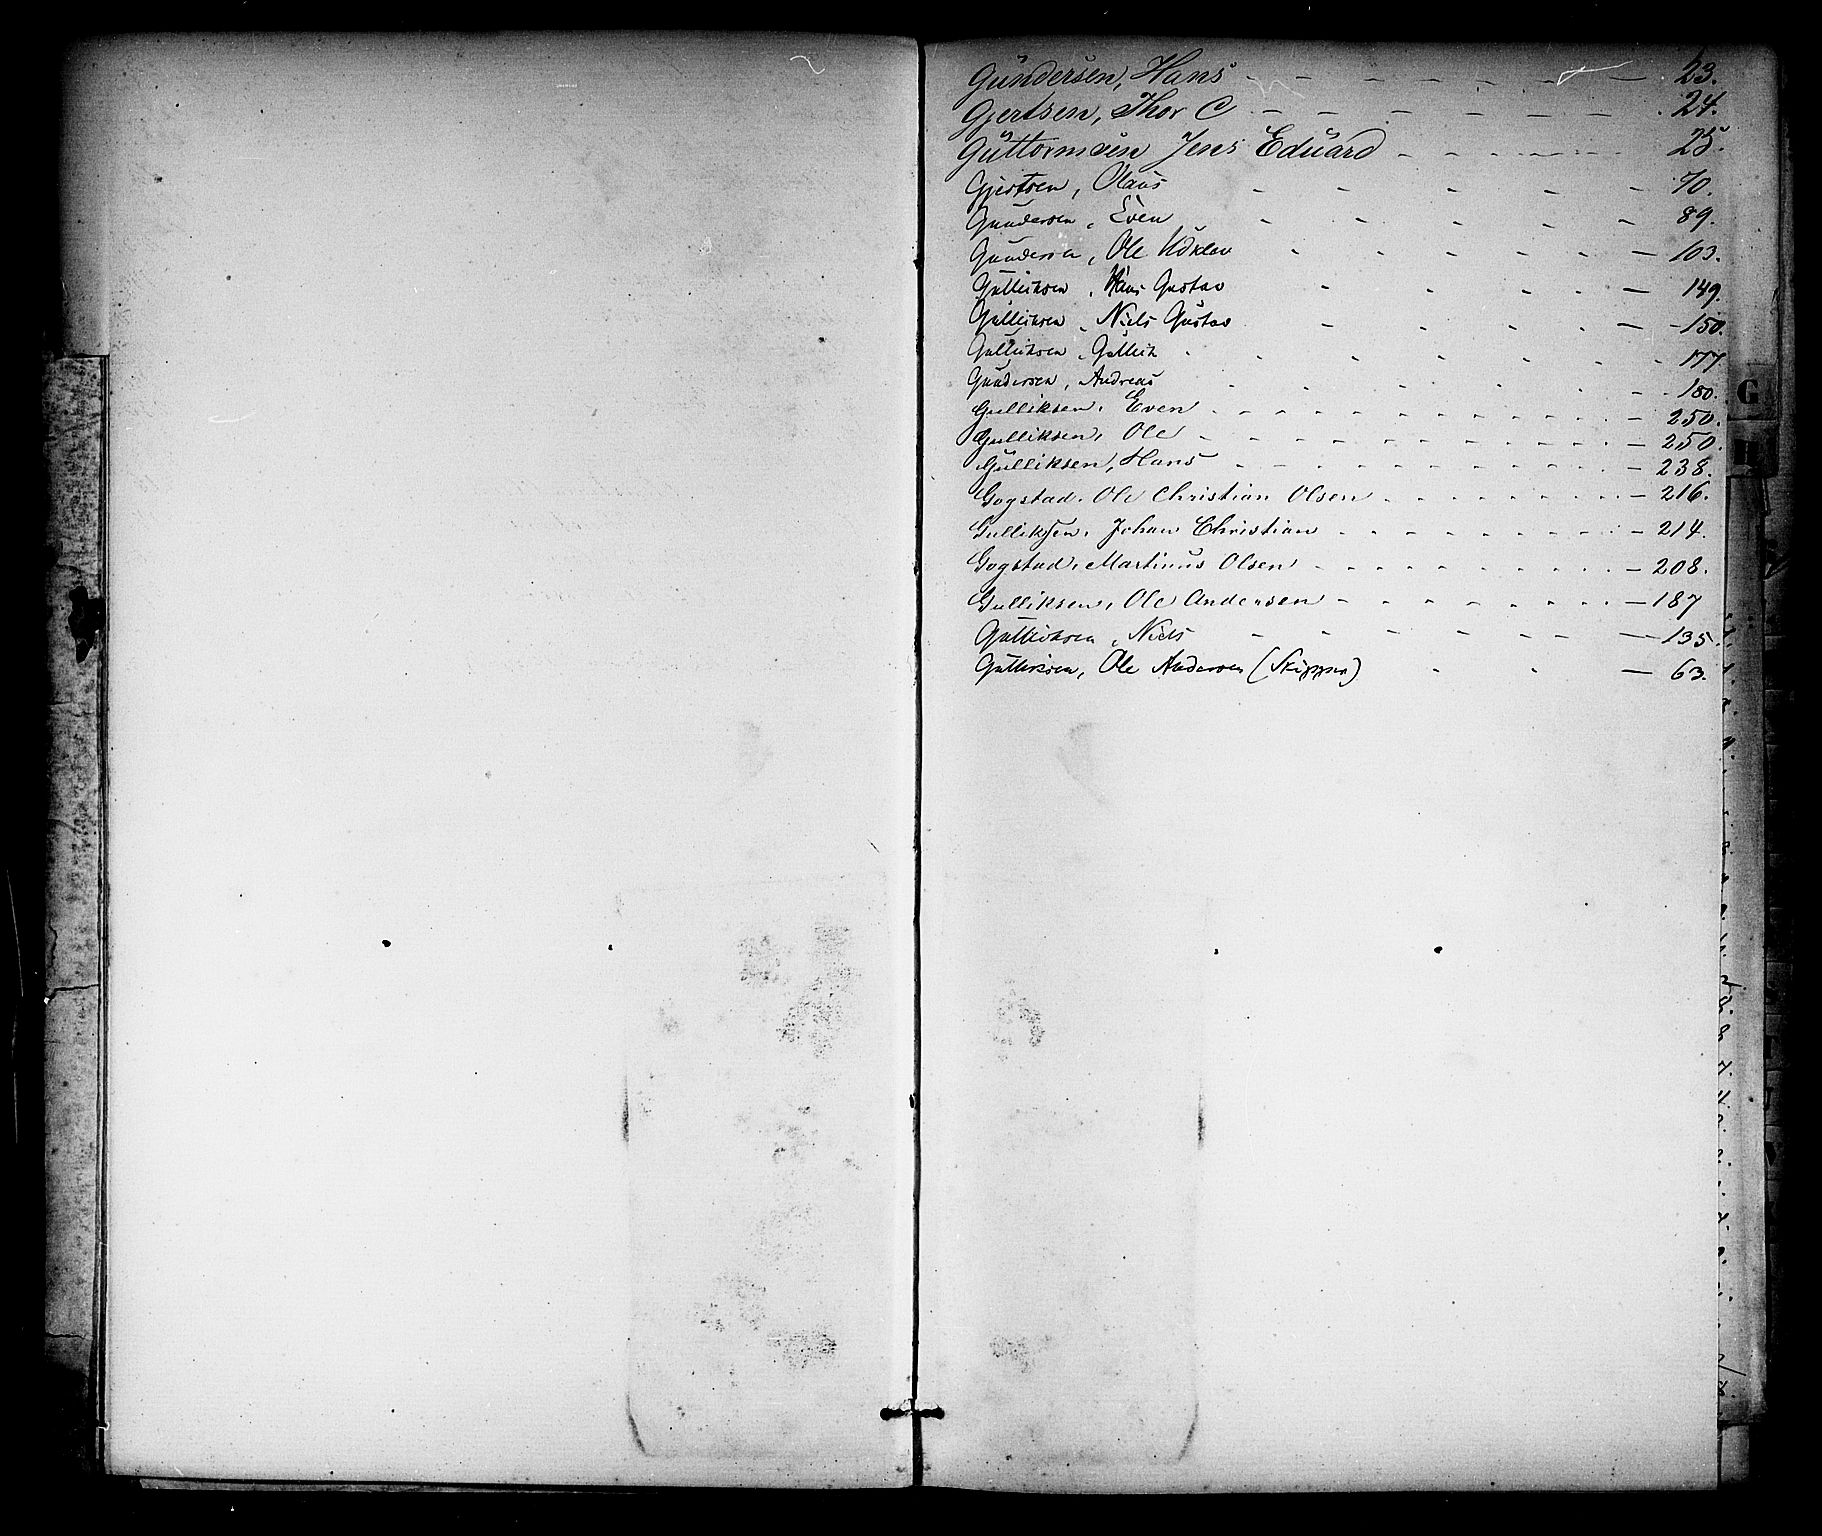 Gündersen, Hans - - - - - - - - 23.
Gjertsen, Thor C - - - - - - - - 24.
Güttormsen Jens Edüard - - - - - - 25.
Gjertsen, Olaüs - - - - - 70.
Gündersen, Even - - - - - 89.
Gundersen, Ole - - - - - 103.
Gülliksen, Hans Gustav - - - - 149.
Gülliksen, Niels Güstav - - - - 150.
Gulliksen, Güllik - - - - - 177
Gündersen, Andreas - - - - - 180.
Gulliksen, Even - - - - - - - 250.
Gulliksen, Ole - - - - - - - 250.
Gülliksen, Hans - - - - - - - 238.
Gogstad, Ole Christian Olsen - - - - - - 216.
Gulliksen, Johan Christian - - - - - - 214.
Gogstad, Martinüs Olsen - - - - - - 208.
Gulliksen, Ole Andersen - - - - - - 187
Gülliksen, Niels - - - - - - 135.
Gülliksen, Ole Andersen (Skipper) - - - 63.
G
H